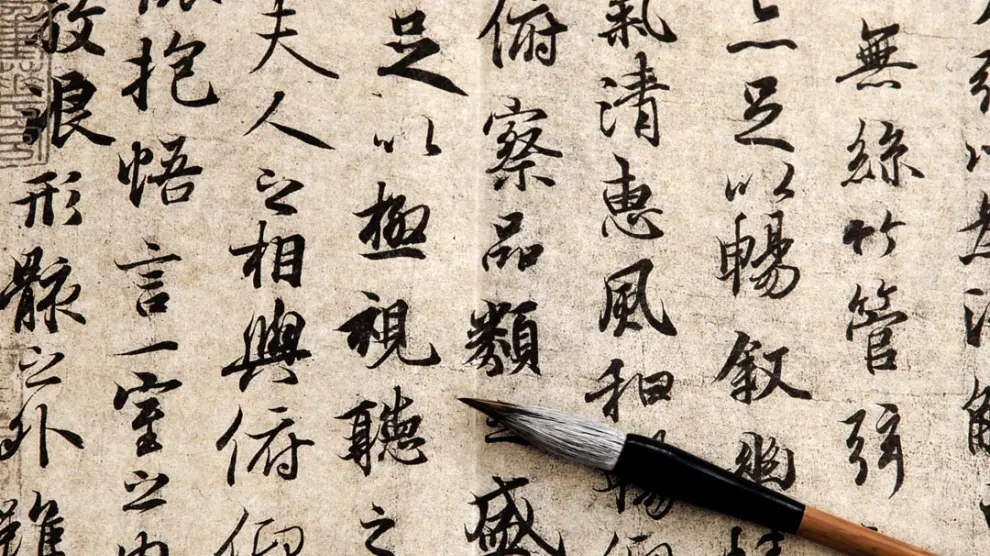 無絲竹管弦
亦足以暢叙幽
氣清惠風和暢仰
俯察品類之盛
足以極視聽之
夫人之相與俯仰
抱悟言一室之内
放浪形骸之外雖